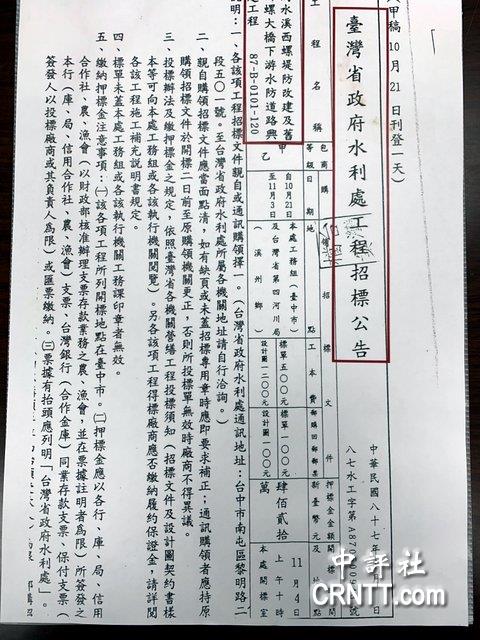 八甲稿10月21日刊登一天)
臺灣省政府水利處工程招標公告
中華民國八十七年
八七水工字第A870
工程名稱
包商等級
購領
日期
招標文件
地點
工本費
郵購回郵郵票
押標金金額
新臺幣元
開標時間及地點
水溪西螺堤防改建及舊
螺大橋下游水防道路興
建工程 87-B-0101-120
甲
乙
自10月21日
至11月3日
本處工務組(臺中市)
及台灣省第四河川局
(溪州鄉)
標單五〇〇元
設計圖一二〇〇元
標單一〇〇元
設計圖一〇〇元
肆佰貳拾
萬
11月4日
上午十時
本處開標室
說明:一、各該項工程招標文件親自或通訊購領擇一。(台灣省政府水利處通訊地址:台中市南屯區黎明路二
段五〇一號。至台灣省政府水利處所屬各機關地址請自行洽詢。)
二、親自購領招標文件應當面點清,如有缺頁或未蓋招標專用章時應即要求補正;通訊購領者應持原
購領招標文件於開標二日前至原購領機關更正,否則所投標單無效時廠商不得異議。
三、投標辦法及繳押標金之規定,依照臺灣省各機關營繕工程投標須知(招標文件及設計圖契約書樣
本等可向本處工務組或各該執行機關閱覽)。另各該項工程得標廠商應否繳納履約保證金,請詳閱
各該工程施工補充說明書規定。
四、標單未蓋本處工務組或各該執行機關工務課印章者無效。
五、繳納押標金注意事項:㈠該各項工程所列開標地點在臺中市。㈡押標金應以各行、庫、局、信用
合作社、農、漁會(以財政部核准辦理支票存款業務之農、漁會,並在票據註明者為限)所簽發之
本行(庫、局、信用合作社、農、漁會)支票、台灣銀行(合作金庫)同業存款支票、保付支票(
簽發人以投標廠商或其負責人為限)或匯票繳納。㈢票據有抬頭應列明「台灣省政府水利處」。
中評社
CRNTT.com